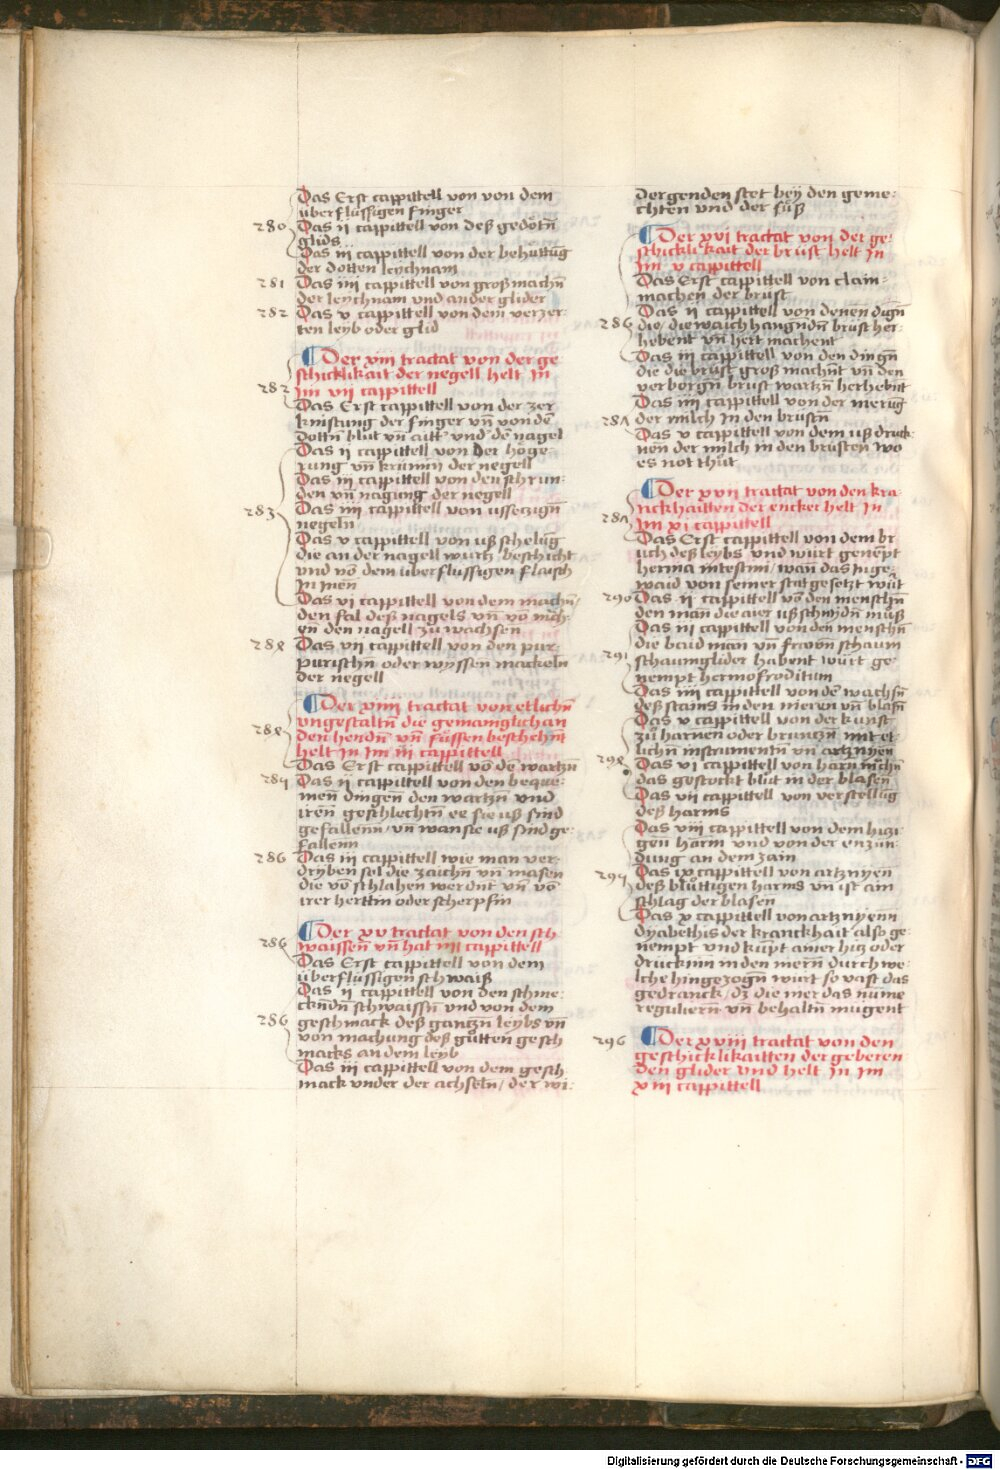 Das Erst cappittell von von dem
überflüssigen finger
280 Das ii cappittell von deß gedötñ
glids
Das iii cappittell von der behüttūg
der dotten leychnam
281 Das iiii cappittell von groß machñ
der leychnam und ander glider
282 Das v cappittell von dem verzer-
ten leyb oder glid
Der xiii tractat von der ge
schicklikait der negell helt in
282 im vii cappittell
Das Erst cappittell von der zer
knistung der finger vñ von dē
dottñ blut vñ aitt' und dē nagel
Das ii cappittell von der höge-
rung vñ krümm̄ der negell
Das iii cappittell von den schrun-
den vñ nagung der negell
283 Das iiii cappittell von ussetzigñ
negelñ
Das v cappittell von uß schelūg
die an der nagell wurtz beschicht
und vō dem überflussigen flaisch
in inen
Das vi cappittell von dem machñ
den fal deß nagels vñ vō mach-
en den nagell zu wachsen
288 Das vii cappittell von den pur
purischñ oder wyssen mackelñ
der negell
Der xiiii tractat von etlichñ
ungestaltñ die gemainglich an
288 den hendñ vñ füssen beschehñt
helt in im iii cappittell
Das Erst cappittell vō dē wartzñ
284 Das ii cappittell von den beque-
men dingen den wartzñ und
iren geschlechtñ ee sie uß sind
gefallenn/ vñ wan sie uß sind ge-
fallenn
286 Das iii cappittell wie man ver-
dryben sol die zaichñ vñ masen
die vō schlahen werdnt vñ vō
irer herttin oder scherpfin
Der xv tractat von den sch
286 waissen vñ hat iiii cappittell
Das Erst cappittell von dem
überflüssigen schwaiß
Das ii cappittell von den schme-
ckndñ schwaissñ und von dem
286 geschmack deß gantzñ leybs vñ
von machung deß gůtten gesch
macks an dem leyb
Das iii cappittell von dem gesch
mack under der achseln/ der wi-
dergenden stet bey den geme-
chten und der füß
Der xvi tractat von der ge-
schicklikait der brust helt in
im v cappittell
Das Erst cappittell von clain-
machen der brust
Das ii cappittell von denen dingñ
286 die/ die waich hangndñ brust her-
hebent vñ hert machent
Das iii cappittell von den dingñ
die die brust groß machñt vñ den
verborgñ brust wartzñ herhebñt
Das iiii cappittell von der merūg
287 der milch in den brustñ
Das v cappittell von dem uß druck-
nen der milch in den brüsten wo
es not thůt
Der xvii tractat von den kra-
nckhaitten der encker helt in
287 im xi cappittell
Das Erst cappittell von dem br
uch deß leybs und würt genēpt
hernia intestini/ wān das inge-
waid von seiner stat gesetzt würt
290 Das ii cappittell vō den menschñ
den man die aier uß schnydñ můß
Das iii cappittell von den menschñ
die baid man vñ frawñ scham
291 schamglider habent würt ge-
nempt hermofroditum
Das iiii cappittell von dē wachsñ
deß stains in den nieren vñ blasñ
Das v cappittell von der kunst
zů harnen oder bruntzñ mit et-
lichñ instrumentñ vñ artznyen
298 Das vi cappittell von harn machñ
das gestockt blut in der blasen
Das vii cappittell von verstellūg
deß harms
Das viii cappittell von dem hitzi-
gen harm und von der enzün-
dung an dem zain
294 Das ix cappittell von artznyen
deß blůttigen harms vñ ist ain
schlag der blasen
Das x cappittell von artznyenn
dyabethis der kranckhait also ge-
nempt und kūpt ainer hitz oder
drücknn in den niern durch we-
lche hingezogñ wirt so vast das
gedranck/ dz die nier das nūme
regulierñ vñ behaltñ mugent
296 Der xviii tractat von den
geschicklikaitten der geberen
den glider und helt in im
xiii cappittell
Digitalisierung gefördert durch die Deutsche Forschungsgemeinschaft - DFG